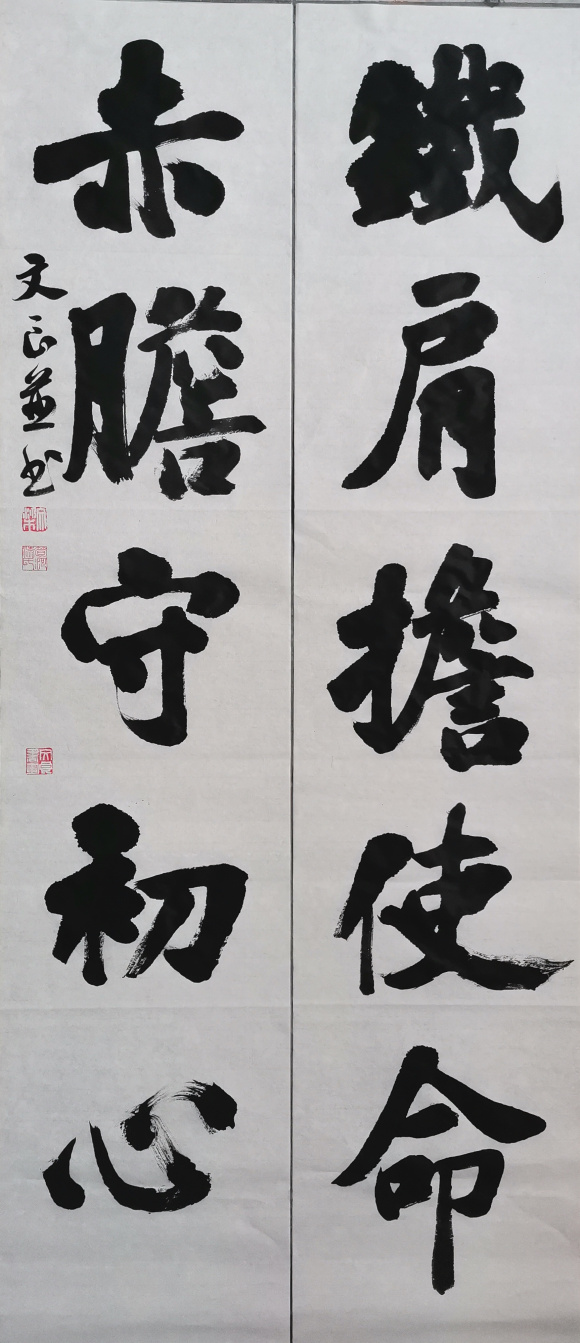 鐵肩擔使命
赤膽守初心
文良並书